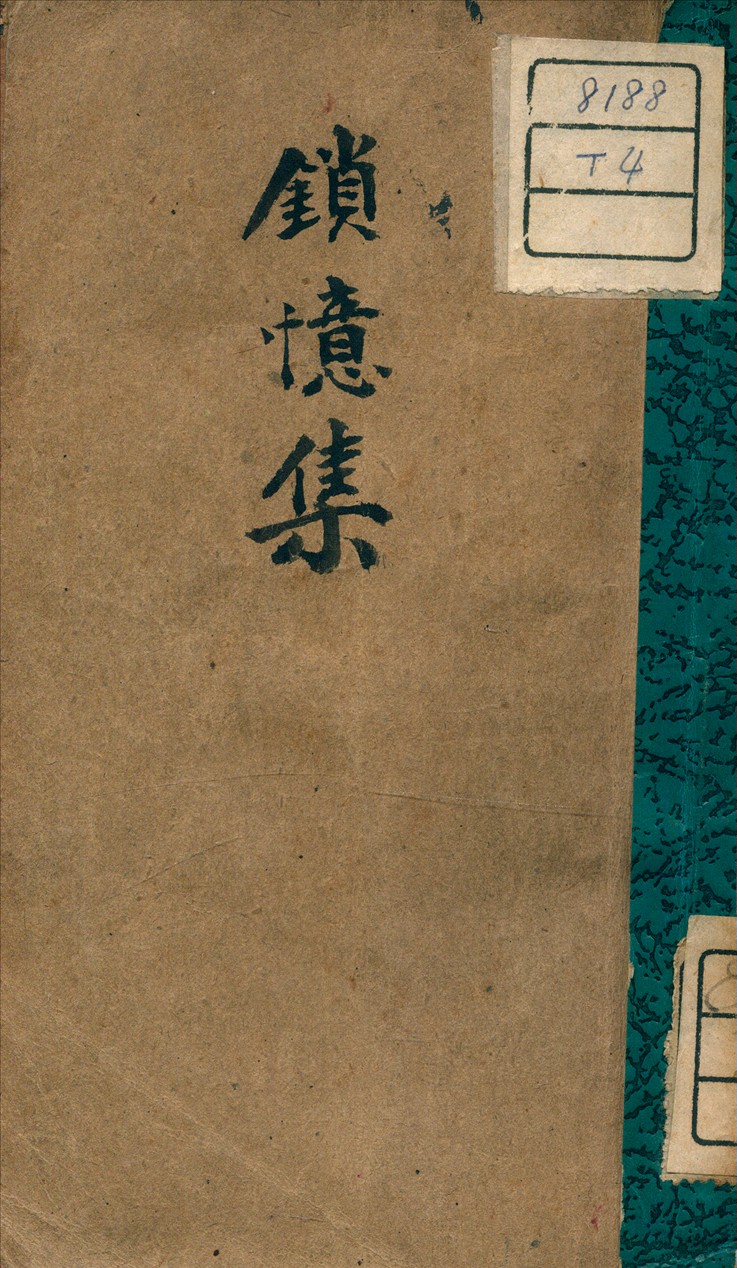 鎖憶集
8188
T4